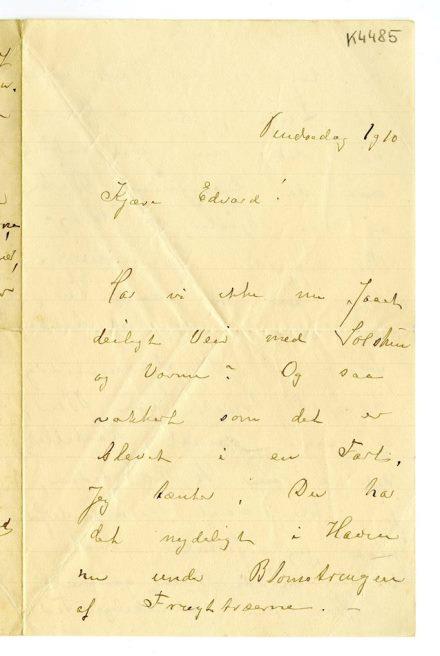 K4485
Kjære Edvard!
Har vi ikke nu faaet
deiligt Veir med Solskin
og Varme? Og saa
vakkert som det er
blevet i en Fart.
Jeg tænker, Du har
det nydeligt i Haven
nu under Blomstringen
af Frugttræerne. –